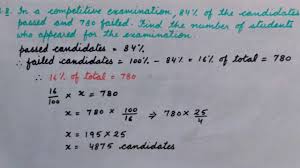 8. In a competitive examination, 84% of the candidates
passed and 780 failed. Find the number of students
who appeared for the examination.
passed candidates = 84%
∴ failed candidates = 100% - 84% = 16% of total = 780
∴ 16% of total = 780
16/100 × x = 780
x = 780 × 100/16 ⇒ 780 × 25/4
x = 195 × 25
x = 4875 candidates